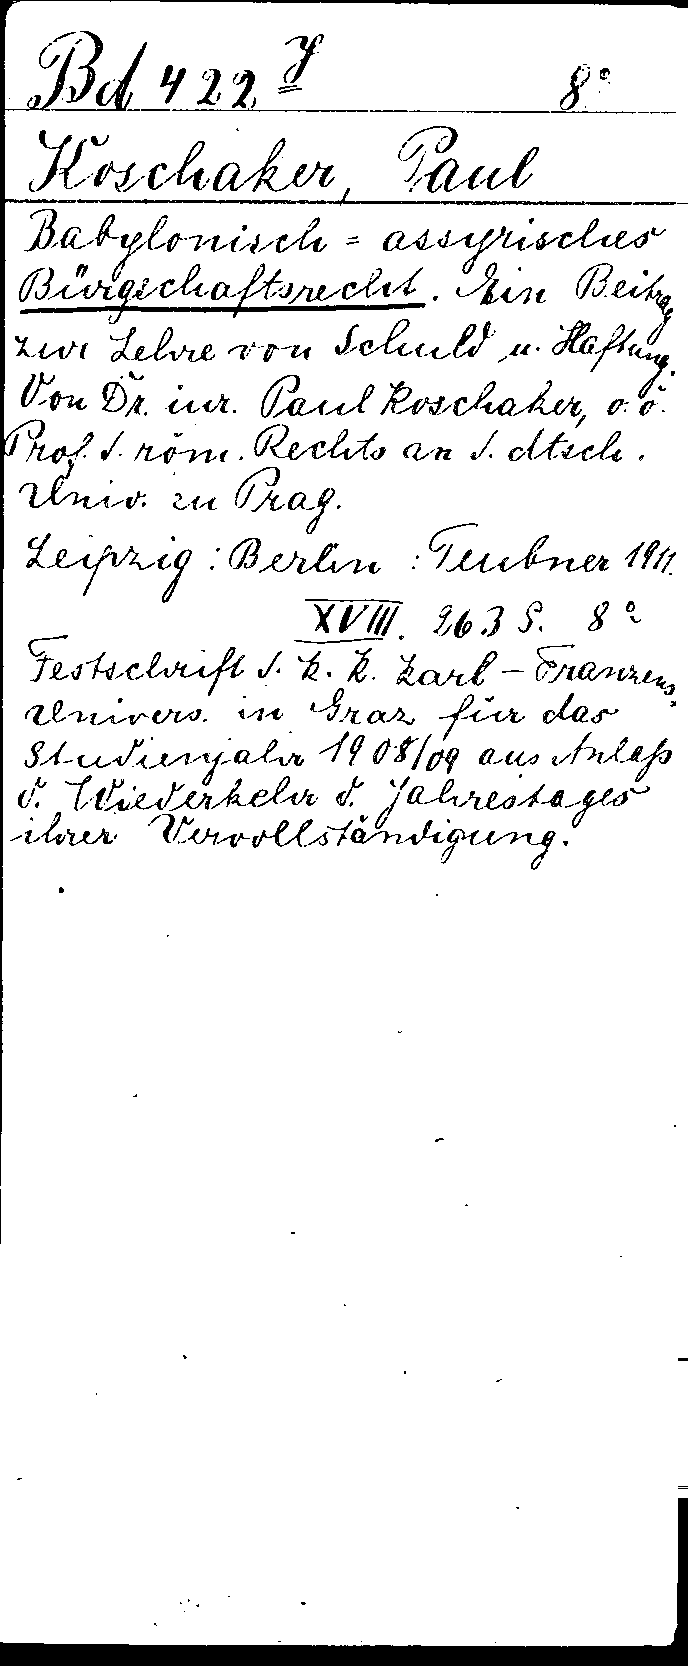 Bd 422 y 8°
Koschaker, Paul
Babylonisch = assyrisches
Bürgschaftsrecht. Ein Beitrag
zur Lehre von Schuld u. Haftung.
Von Dr. iur. Paul Koschaker, o. ö.
Prof. d. röm. Rechts an d. dtsch.
Univ. zu Prag.
Leipzig : Berlin : Teubner 1911.
XVIII. 263 S. 8°
Festschrift d. k. k. Karl-Franzens,
Univers. in Graz für das
Studienjahr 1908/09 aus Anlaß
d. Wiederkehr d. Jahrestages
ihrer Vervollständigung.